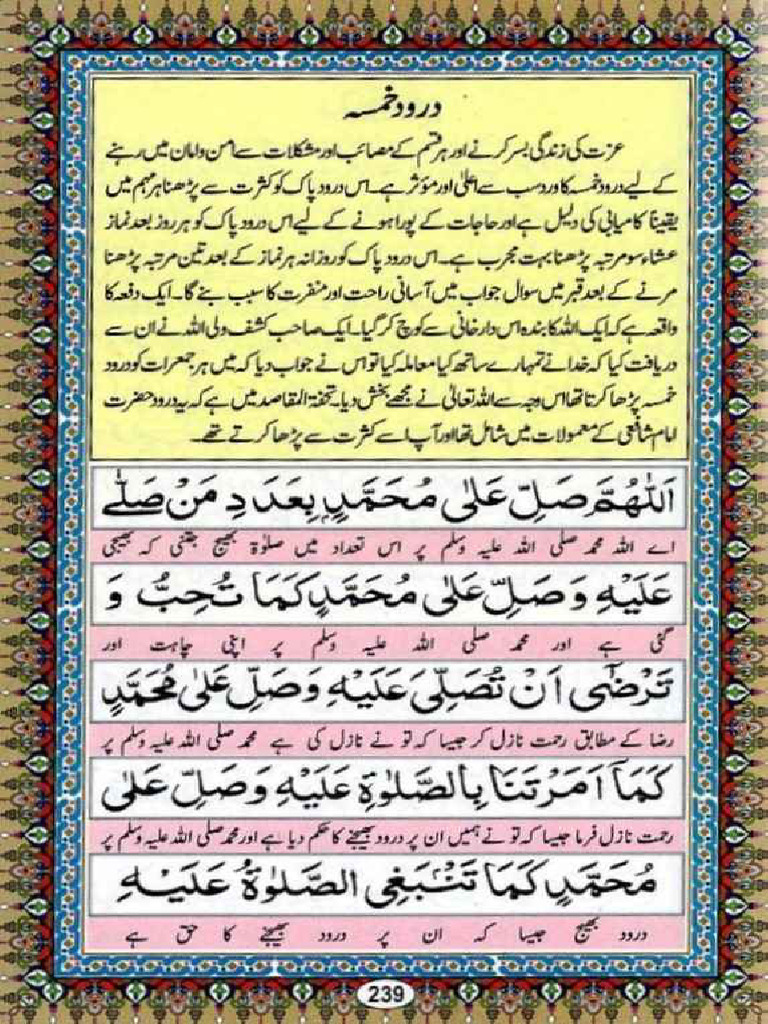 درود خمسہ
عزت کی زندگی بسر کرنے اور ہر قسم کے مصائب اور مشکلات سے امن و امان میں رہنے
کے لیے درود خمسہ کا ورد سب سے اعلیٰ اور مؤثر ہے۔ اس درود پاک کو کثرت سے پڑھنا ہر مہم میں
یقینا کامیابی کی دلیل ہے اور حاجات کے پورا ہونے کے لیے اس درود پاک کو ہر روز بعد نماز
عشاء سو مرتبہ پڑھنا بہت مجرب ہے۔ اس درود پاک کو روزانہ ہر نماز کے بعد تین مرتبہ پڑھنا
مرنے کے بعد قبر میں سوال جواب میں آسانی راحت اور منفرت کا سبب بنے گا۔ ایک دفعہ کا
واقعہ ہے کہ ایک اللہ کا بندہ اس دار فانی سے کوچ کر گیا۔ ایک صاحب کشف ولی اللہ نے ان سے
دریافت کیا کہ خدا نے تمہارے ساتھ کیا معاملہ کیا تو اس نے جواب دیا کہ میں ہر جمعرات کو درود
خمسہ پڑھا کرتا تھا اس وجہ سے اللہ تعالیٰ نے مجھے بخش دیا۔ تحفۃ المقاصد میں ہے کہ یہ درود حضرت
امام شافعی کے معمولات میں شامل تھا اور آپ اسے کثرت سے پڑھا کرتے تھے۔
اَللّٰهُمَّ صَلِّ عَلٰى مُحَمَّدٍ بِعَدَدِ مَنْ صَلّٰى
اے اللہ محمد صلی اللہ علیہ وسلم پر اس تعداد میں صلوٰۃ بھیج جتنی کہ بھیجی
عَلَيْهِ وَصَلِّ عَلٰى مُحَمَّدٍ كَمَا تُحِبُّ وَ
گئی ہے اور محمد صلی اللہ علیہ وسلم پر اپنی چاہت اور
تَرْضٰٓى اَنْ تُصَلِّىَ عَلَيْهِ وَصَلِّ عَلٰى مُحَمَّدٍ
رضا کے مطابق رحمت نازل کر جیسا کہ تو نے نازل کی ہے محمد صلی اللہ علیہ وسلم پر
كَمَآ اَمَرْتَنَا بِالصَّلٰوةِ عَلَيْهِ وَصَلِّ عَلٰى
رحمت نازل فرما جیسا کہ تو نے ہمیں ان پر درود بھیجنے کا حکم دیا ہے اور محمد صلی اللہ علیہ وسلم پر
مُحَمَّدٍ كَمَا تَنْۢبَغِى الصَّلٰوةُ عَلَيْهِ
درود بھیج جیسا کہ ان پر درود بھیجنے کا حق ہے
239